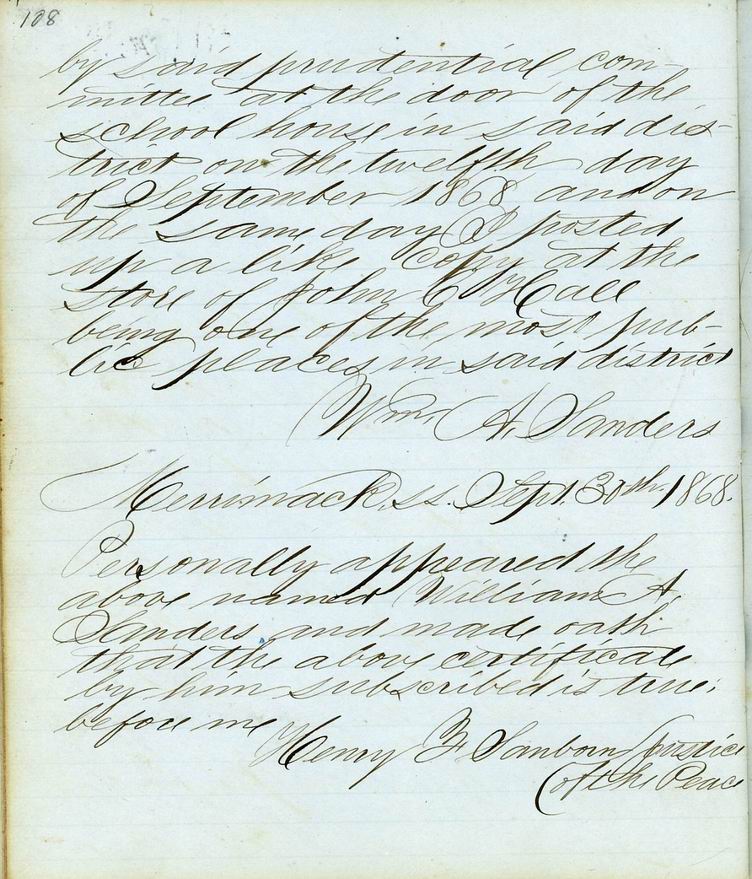 108
by said prudential com-
mittee at the door of the
school house in said dis-
trict on the twelfth day
of September 1868 and on
the same day I posted
up a like copy at the
store of John C Hall
being one of the most pub-
lic places in said district
Wm. A. Sanders
Merrimack, ss. Sept. 30th, 1868.
Personally appeared the
above named William A.
Sanders and made oath
that the above certificate
by him subscribed is true;
before me
Henry F. Sanborn Justice
of the Peace